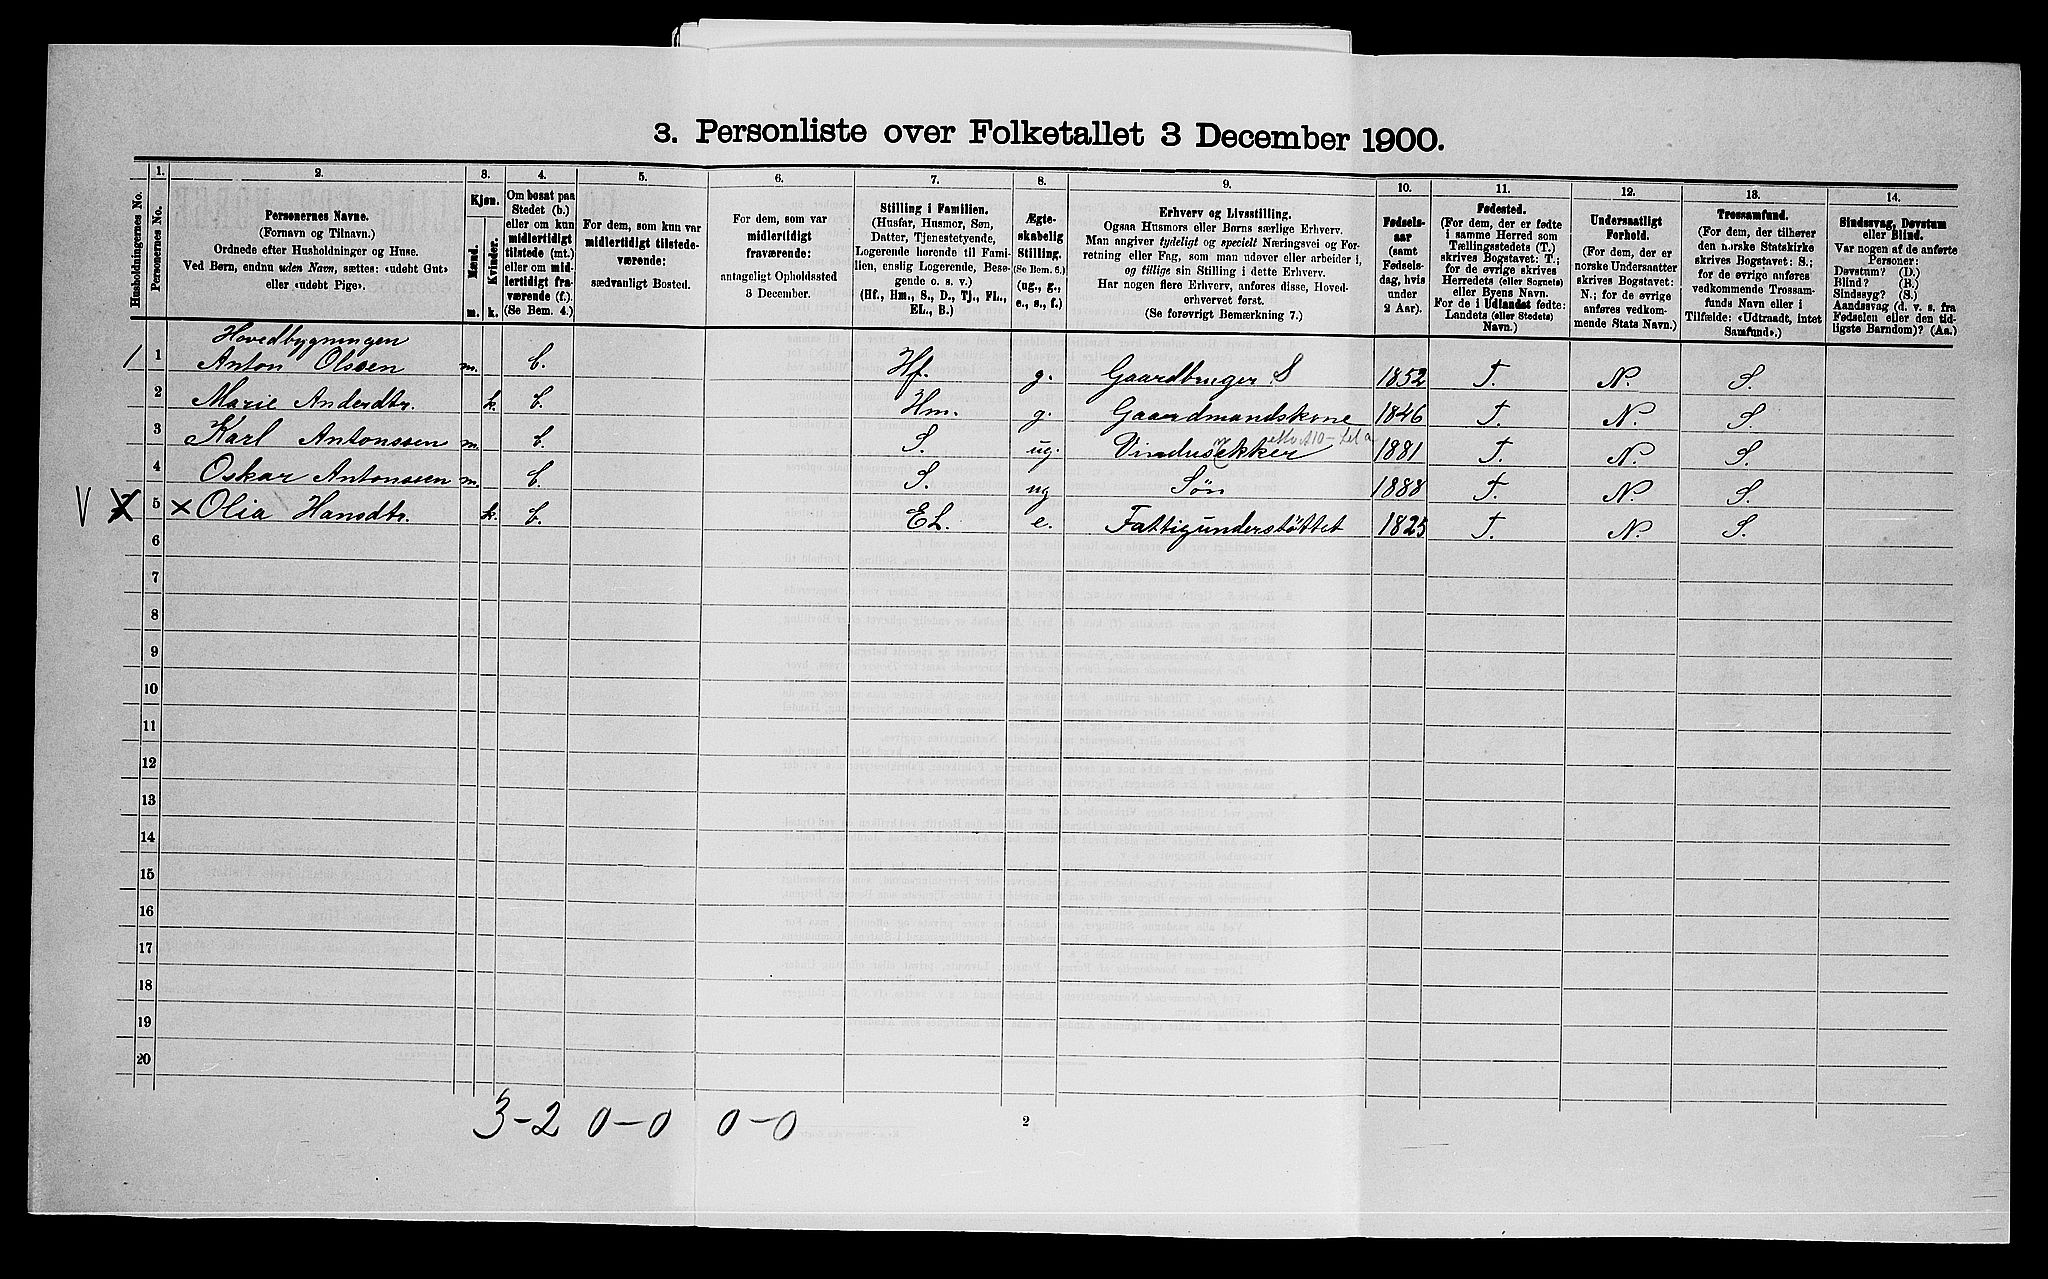 3. Personliste over Folketallet 3 December 1900.
Husholdningernes No.
1.
Personernes No.
2.
Personernes Navne.
(Fornavn og Tilnavn.)
Ordnede efter Husholdninger og Huse.
Ved Børn, endnu uden Navn, sættes: «udøbt Gut»
eller «udøbt Pige».
3.
Kjøn.
Mænd.
Kvinder.
m.
k.
4.
Om bosat paa
Stedet (b.)
eller om kun
midlertidigt
tilstede (mt.)
eller om mid-
lertidigt fra-
værende (f.).
(Se Bem. 4.)
5.
For dem, som kun var
midlertidigt tilstede-
værende:
sædvanligt Bosted.
6.
For dem, som var
midlertidigt
fraværende:
antageligt Opholdssted
3 December.
7.
Stilling i Familien.
(Husfar, Husmor, Søn,
Datter, Tjenestetyende,
Logerende hørende til Fami-
lien, enslig Logerende, Besø-
gende o. s. v.)
(Hf., Hm., S., D., Tj., FL.,
EL., B.)
8.
Ægte-
skabelig
Stilling.
(Se Bem. 6.)
(ug., g.,
e., s., f.)
9.
Erhverv og Livsstilling.
Ogsaa Husmors eller Børns særlige Erhverv.
Man angiver tydeligt og specielt Næringsvei og For-
retning eller Fag, som man udøver eller arbeider i,
og tillige sin Stilling i dette Erhverv.
Har nogen flere Erhverv, anføres disse, Hoved-
erhvervet først.
(Se forøvrigt Bemærkning 7.)
10.
Fødsels-
aar
(samt
Fødsels-
dag, hvis
under
2 Aar).
11.
Fødested.
(For dem, der er fødte
i samme Herred som
Tællingsstedets (T.)
skrives Bogstavet: T.;
for de øvrige skrives
Herredets (eller Sognets)
eller Byens Navn.
For de i Udlandet fødte:
Landets (eller Stedets)
Navn.)
12.
Undersaatligt
Forhold.
(For dem, der er
norske Undersaatter
skrives Bogstavet:
N.; for de øvrige
anføres vedkom-
mende Stats Navn.)
13.
Trossamfund.
(For dem, der tilhører
den norske Statskirke
skrives Bogstavet: S.;
for de øvrige anføres
vedkommende Trossam-
funds Navn eller i
Tilfælde: «Udtraadt, intet
Samfund».)
14.
Sindssvag, Døvstum
eller Blind.
Var nogen af de anførte
Personer:
Døvstum? (D.)
Blind? (B.)
Sindssyg? (S.)
Aandssvag (d. v. s. fra
Fødselen eller den tid-
ligste Barndom)? (Aa.)
Hovedbygningen
1 1 Anton Olssen m. b. Hf. g. Gaardbruger S 1852 T. N. S.
2 Marie Anderdtr. k. b. Hm. g. Gaardmandskone 1846 T. N. S.
3 Karl Antonssen m. b. S. ug. Vindusækker 1881 T. N. S.
4 Oskar Antonssen m. b. S. ug Søn 1888 T. N. S.
V 5 × Olia Hansdtr. k. b. EL. e. Fattigunderstøttet 1825 T. N. S.
6
7
8
9
10
11
12
13
14
15
16
17
18
19
20
3-2 0-0 0-0
2